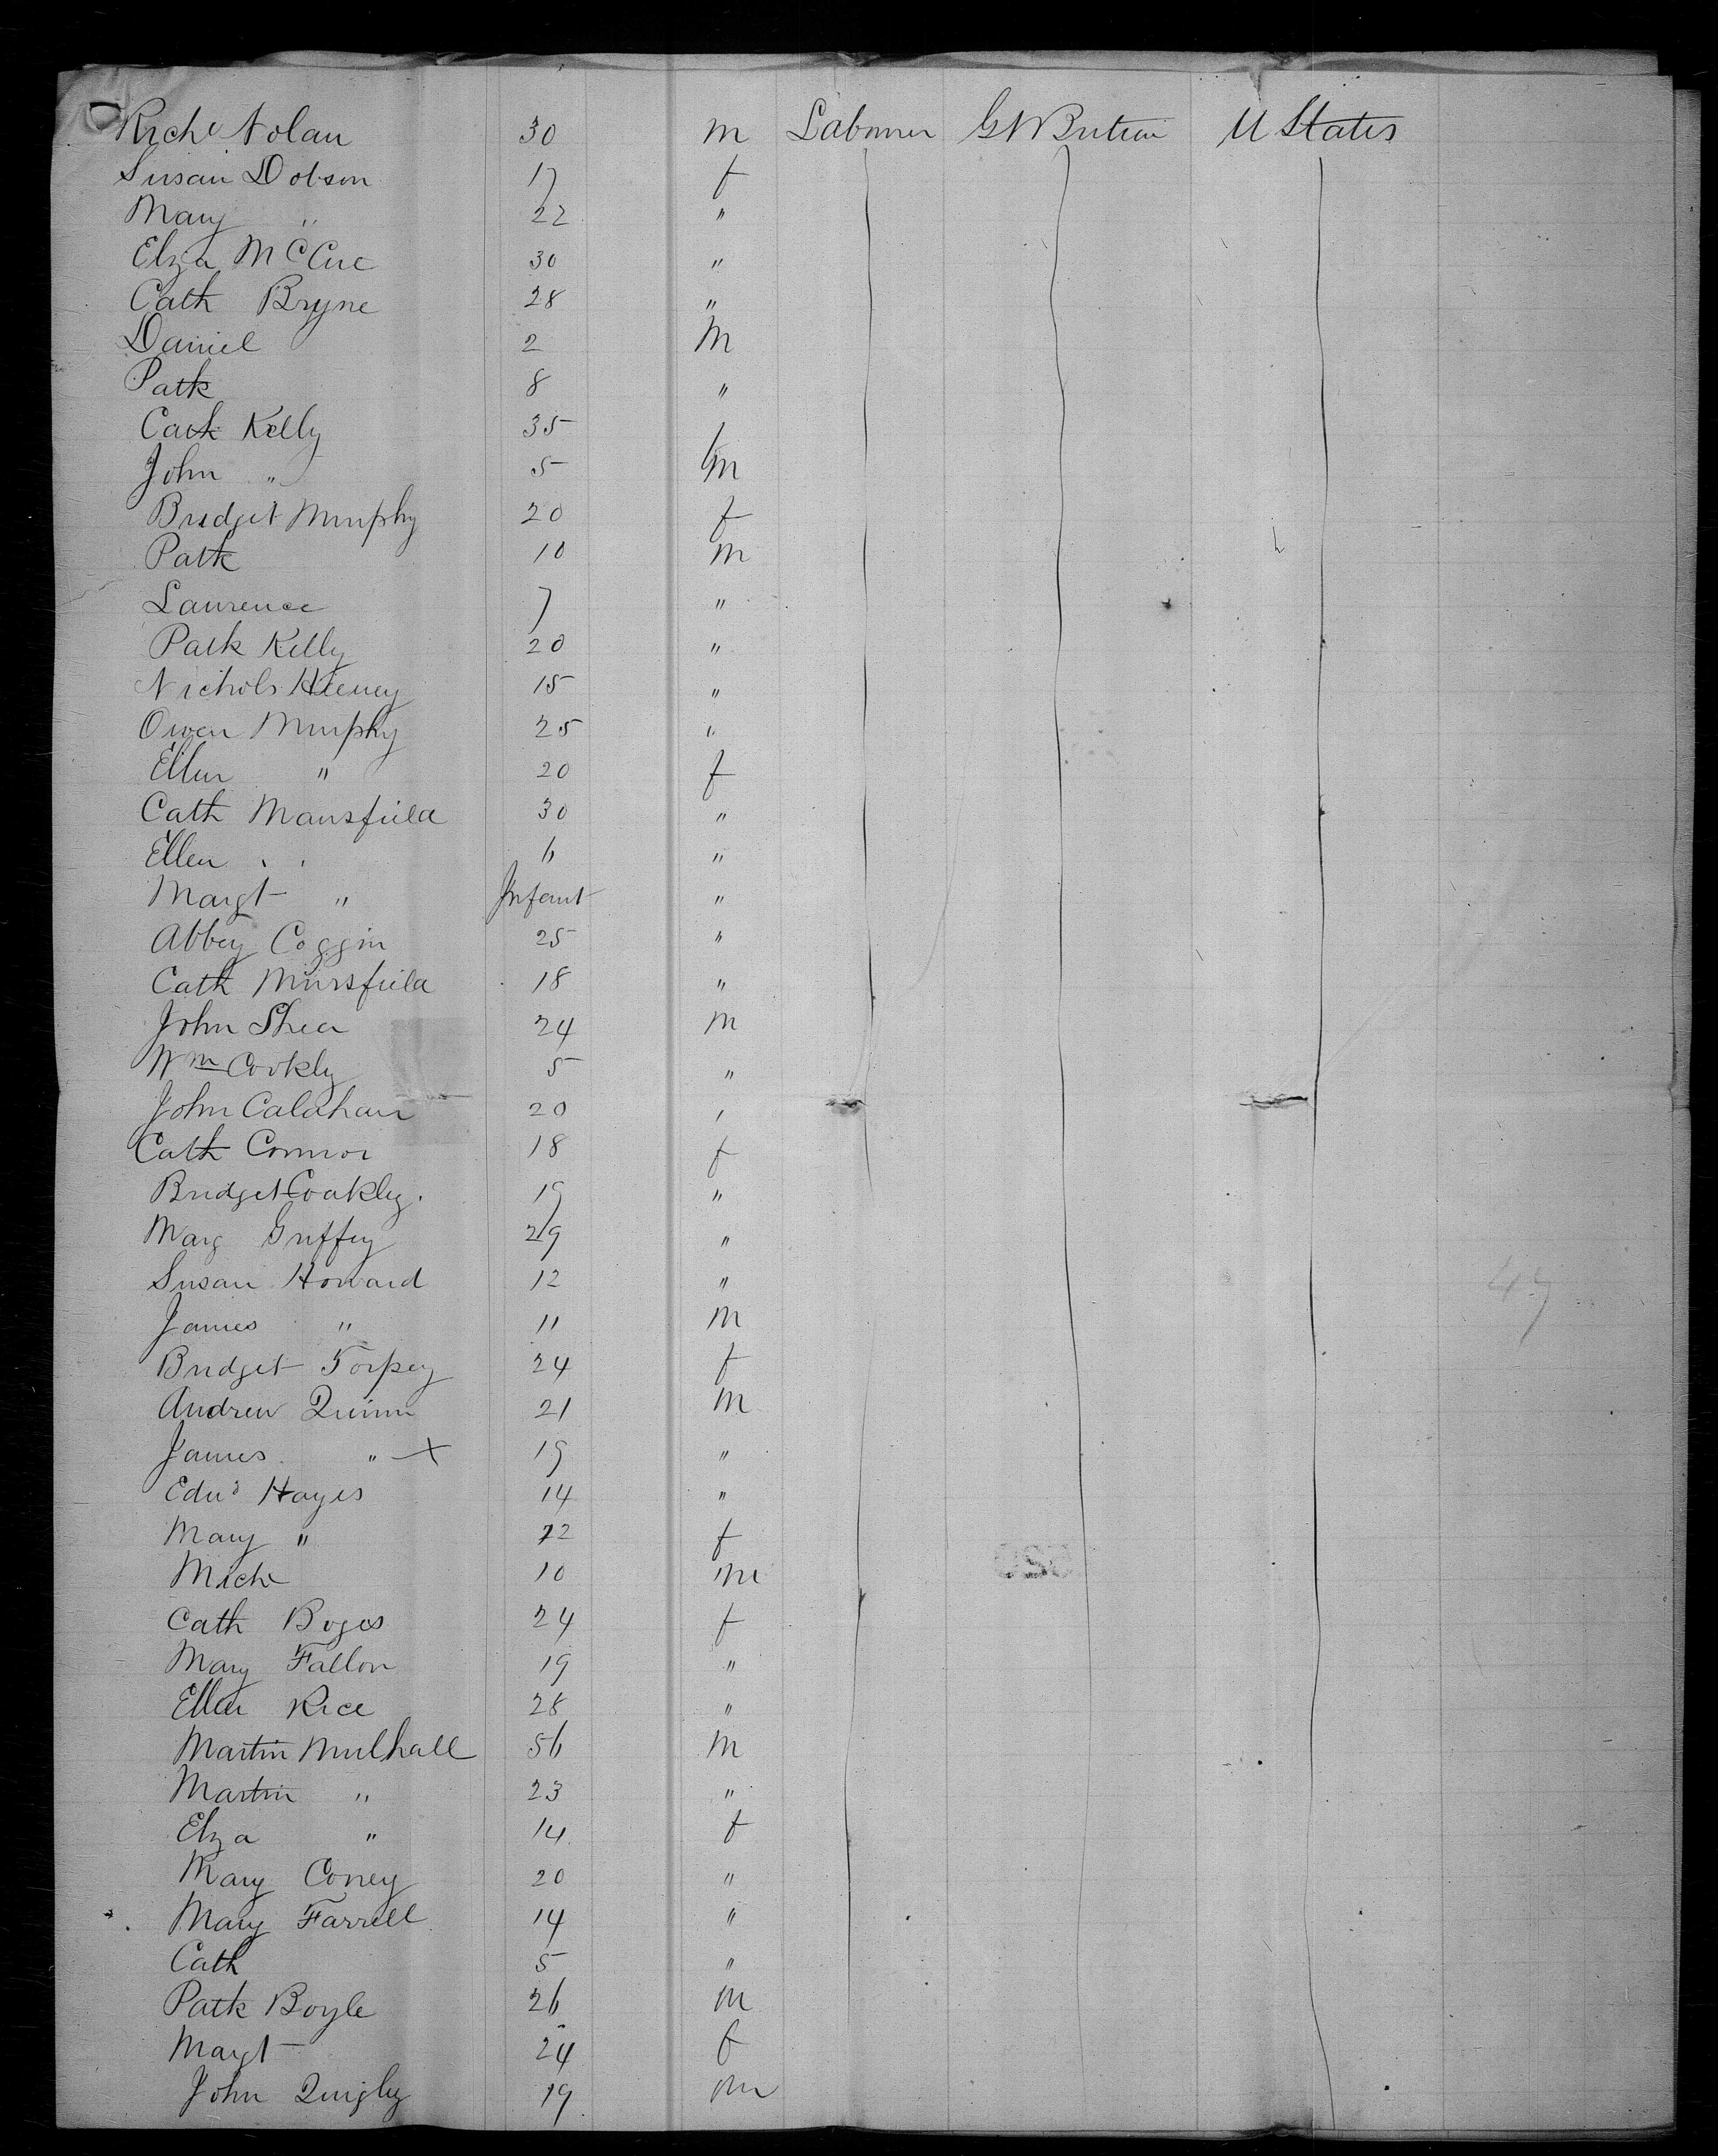 Richd Nolan 30 m Labourer Gt Britain U States
Susan Dobson 17 f
Mary " 22 "
Elza McCue 30 "
Cath Bryne 28 "
Daniel 2 M
Patk 8 "
Cath Kelly 35 f
John " 5 m
Bridget Murphy 20 f
Patk 10 m
Laurence 7 "
Patk Kelly 20 "
Nichols Heeney 15 "
Owen Murphy 25 "
Ellen " 20 f
Cath Mansfield 30 "
Ellen " 6 "
Margt " Infant "
Abbey Coggin 25 "
Cath Mansfield 18 "
John Shea 24 m
Wm Cookly 5 "
John Calahan 20 "
Cath Connor 18 f
Bridget Coakley. 19 "
Marg Griffey 29 "
Susan Howard 12 "
James " 11 m
Bridget Torpey 24 f
Andrew Quinn 21 m
James " X 19 "
Edwd Hayes 14 "
Mary " 12 f
Mich 10 m
Cath Boges 24 f
Mary Fallon 19 "
Ellen Rice 28 "
Martin Mulhall 56 m
Martin " 23 "
Elza " 14 f
Mary Coney 20 "
Mary Farrell 14 "
Cath 5 "
Patk Boyle 26 m
Margt 24 f
John Quigly 19 m